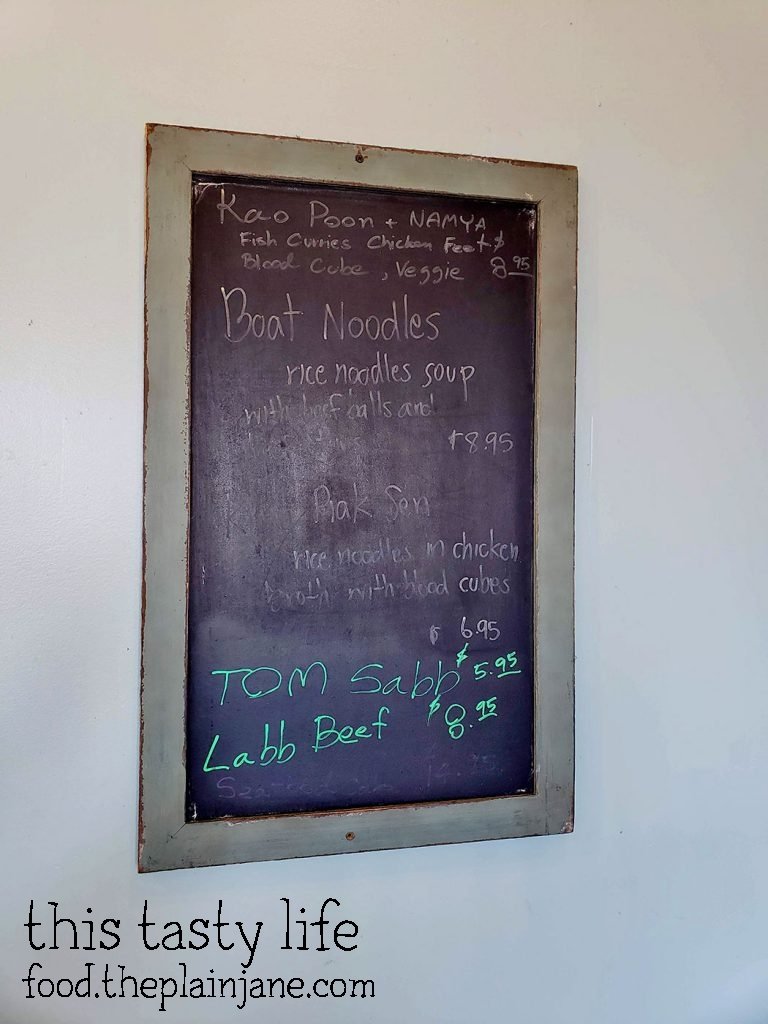 Kao Poon + NAMYA
Fish Curries Chicken Feet $
Blood Cube, Veggie 8.95
Boat Noodles
rice noodles soup
with beef balls and
$8.95
Piak Sen
rice noodles in chicken
broth with blood cubes
$ 6.95
TOM Sabb $5.95
Labb Beef $8.95
this tasty life
food.theplainjane.com